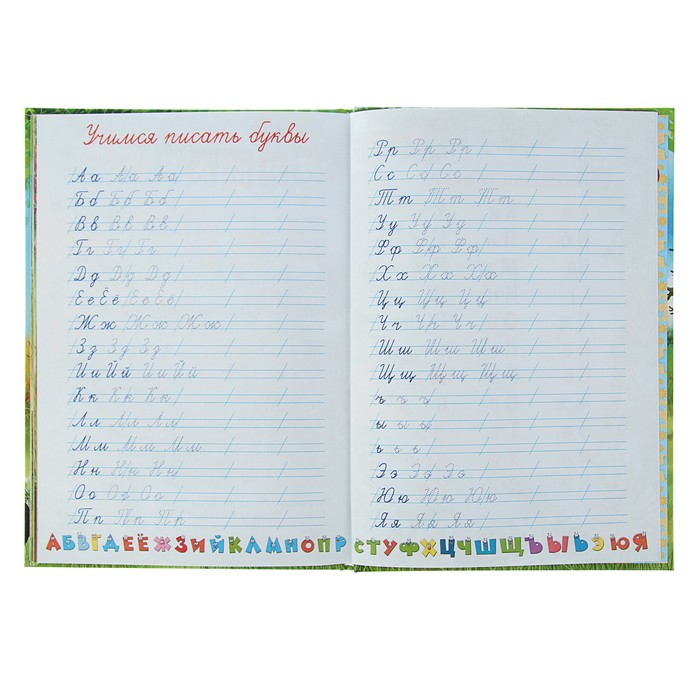 Учимся писать буквы
Аа Аа Аа
Бб Бб Бб
Вв Вв Вв
Гг Гг Гг
Дд Дд Дд
ЕеЁё ЕеЁё
Жж Жж Жж
Зз Зз Зз
ИиЙй ИиЙй
Кк Кк Кк
Лл Лл Лл
Мм Мм Мм
Нн Нн Нн
Оо Оо Оо
Пп Пп Пп
АБВГДЕЁЖЗИЙКЛМНОПР
Рр Рр Рр
Сс Сс Сс
Тт Тт Тт
Уу Уу Уу
Фф Фф Фф
Хх Хх Хх
Цц Цц Цц
Чч Чч Чч
Шш Шш Шш
Щщ Щщ Щщ
ъ ъ ъ
ы ы ы
ь ь ь
Ээ Ээ Ээ
Юю Юю Юю
Яя Яя Яя
СТУФХЦЧШЩЪЫЬЭЮЯ